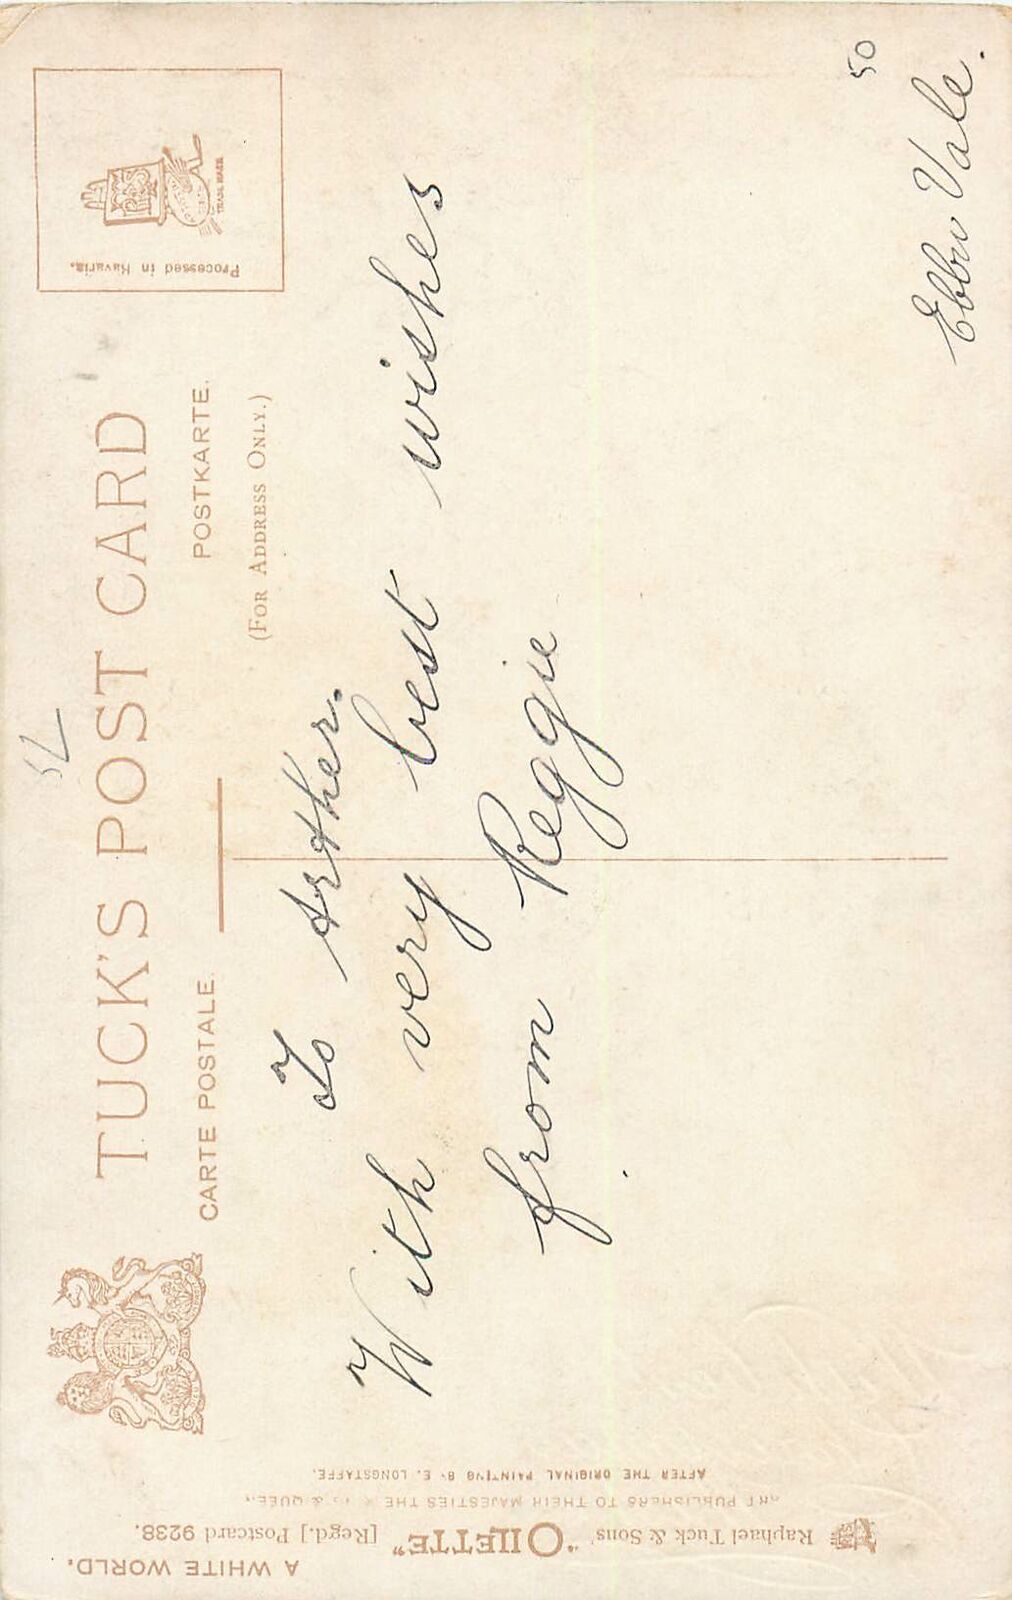 A WHITE WORLD.
Raphael Tuck & Sons' "OILETTE" [Regd.] Postcard 9238.
ART PUBLISHERS TO THEIR MAJESTIES THE KING & QUEEN.
AFTER THE ORIGINAL PAINTING BY E. LONGSTAFFE.
TUCK'S POST CARD
CARTE POSTALE. POSTKARTE.
(FOR ADDRESS ONLY.)
Processed in Bavaria.
TRADE MARK
To Arther.
With very best wishes
from Reggie
Ebbw Vale.
50